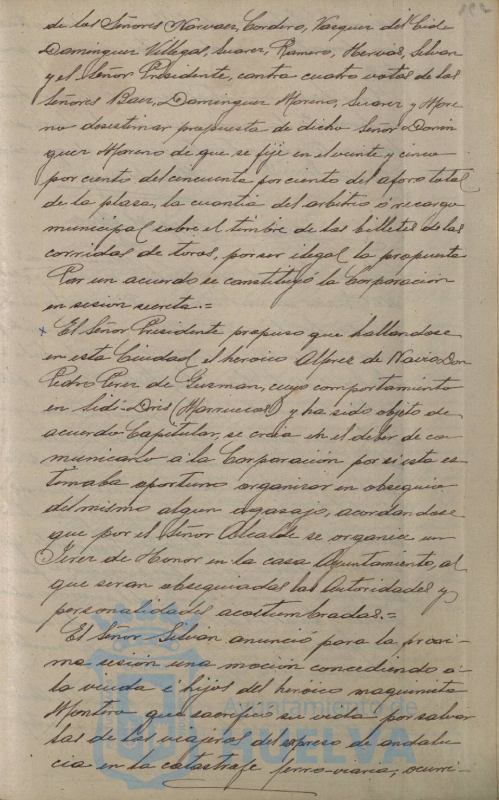 de los Señores Narvaez, Cordero, Vazquez del Cid
Dominguez Villegas, Suarez, Romero, Hervás, Silvan
y el Señor Presidente, contra cuatro votos de los
Señores Baez, Dominguez Moreno, Suarez y More
no desestimar propuesta de dicho Señor Domin
guez Moreno de que se fije en el veinte y cinco
por ciento del cincuenta por ciento del aforo total
de la plaza, la cuantia del arbitrio ó recargo
municipal sobre el timbre de los billetes de las
corridas de toros, por ser ilegal la propuesta
Por un acuerdo se constituyó la Corporación
en sesión secreta.=
x El Señor Presidente propuso que hallandose
en esta Ciudad el heróico Alferez de Navio, Don
Pedro Perez de Guzman, cuyo comportamiento
en Sidi-Dris (Marruecos) y ha sido objeto de
acuerdo Capitular, se creia en el deber de co
municarlo á la Corporación por si esta es
timaba oportuno organizar en obsequio
del mismo algun agasajo, acordandose
que por el Señor Alcalde se organice un
Jerez de Honor en la casa Ayuntamiento, al
que seran obsequiadas las Autoridades y
personalidades acostumbradas.=
El Señor Silvan anunció para la proxi-
ma sesión una moción concediendo á
la viuda é hijos del heróico maquinista
Montro que sacrificó su vida por salvar
las de los viajeros del expreso de andalu
cia en la catastrofe ferro-viaria, ocurri-
Ayuntamiento de
HUELVA